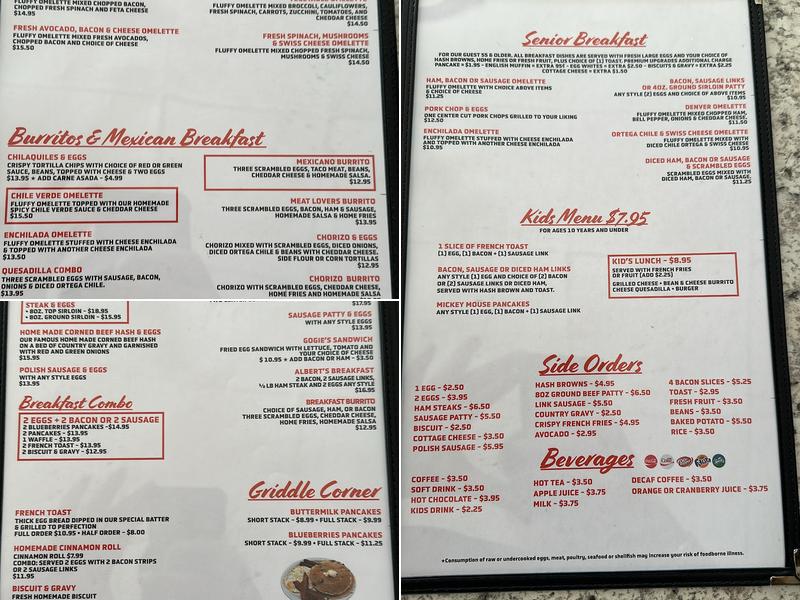 FLUFFY OMELETTE MIXED CHOPPED BACON,
CHOPPED FRESH SPINACH AND FETA CHEESE
$14.95
FRESH AVOCADO, BACON & CHEESE OMELETTE
FLUFFY OMELETTE MIXED FRESH AVOCADOS,
CHOPPED BACON AND CHOICE OF CHEESE
$15.50
FLUFFY OMELETTE MIXED BROCCOLI, CAULIFLOWERS,
FRESH SPINACH, CARROTS, ZUCCHINI, TOMATOES, AND
CHEDDAR CHEESE
$14.50
FRESH SPINACH, MUSHROOMS
& SWISS CHEESE OMELETTE
FLUFFY OMELETTE MIXED CHOPPED FRESH SPINACH,
MUSHROOMS & SWISS CHEESE
$14.50
Burritos & Mexican Breakfast
CHILAQUILES & EGGS
CRISPY TORTILLA CHIPS WITH CHOICE OF RED OR GREEN
SAUCE, BEANS, TOPPED WITH CHEESE & TWO EGGS
$13.95 + ADD CARNE ASADA - $4.99
CHILE VERDE OMELETTE
FLUFFY OMELETTE TOPPED WITH OUR HOMEMADE
SPICY CHILE VERDE SAUCE & CHEDDAR CHEESE
$15.50
ENCHILADA OMELETTE
FLUFFY OMELETTE STUFFED WITH CHEESE ENCHILADA
& TOPPED WITH ANOTHER CHEESE ENCHILADA
$13.50
QUESADILLA COMBO
THREE SCRAMBLED EGGS WITH SAUSAGE, BACON,
ONIONS & DICED ORTEGA CHILE.
$13.95
MEXICANO BURRITO
THREE SCRAMBLED EGGS, TACO MEAT, BEANS,
CHEDDAR CHEESE & HOMEMADE SALSA.
$12.95
MEAT LOVERS BURRITO
THREE SCRAMBLED EGGS, BACON, HAM & SAUSAGE,
HOMEMADE SALSA & HOME FRIES
$13.95
CHORIZO & EGGS
CHORIZO MIXED WITH SCRAMBLED EGGS, DICED ONIONS,
DICED ORTEGA CHILE & BEANS WITH CHEDDAR CHEESE.
SIDE FLOUR OR CORN TORTILLAS
$12.95
CHORIZO BURRITO
CHORIZO WITH SCRAMBLED EGGS, CHEDDAR CHEESE,
HOME FRIES AND HOMEMADE SALSA
STEAK & EGGS
• 8OZ. TOP SIRLOIN - $18.95
• 8OZ. GROUND SIRLOIN - $15.95
HOME MADE CORNED BEEF HASH & EGGS
OUR FAMOUS HOME MADE CORNED BEEF HASH
ON A BED OF COUNTRY GRAVY AND GARNISHED
WITH RED AND GREEN ONIONS
$15.95
POLISH SAUSAGE & EGGS
WITH ANY STYLE EGGS
$13.95
Breakfast Combo
2 EGGS + 2 BACON OR 2 SAUSAGE
2 BLUEBERRIES PANCAKES -$14.95
2 PANCAKES - $13.95
1 WAFFLE - $13.95
2 FRENCH TOAST - $13.95
2 BISCUIT & GRAVY - $12.95
$17.95
SAUSAGE PATTY & EGGS
WITH ANY STYLE EGGS
$13.95
GOGIE'S SANDWICH
FRIED EGG SANDWICH WITH LETTUCE, TOMATO AND
YOUR CHOICE OF CHEESE
$ 10.95 + ADD BACON OR HAM - $3.50
ALBERT'S BREAKFAST
2 BACON, 2 SAUSAGE LINKS,
½ LB HAM STEAK AND 2 EGGS ANY STYLE
$16.95
BREAKFAST BURRITO
CHOICE OF SAUSAGE, HAM, OR BACON
THREE SCRAMBLED EGGS, CHEDDAR CHEESE,
HOME FRIES, HOMEMADE SALSA
$12.95
Griddle Corner
FRENCH TOAST
THICK EGG BREAD DIPPED IN OUR SPECIAL BATTER
& GRILLED TO PERFECTION
FULL ORDER $10.95 • HALF ORDER - $8.00
HOMEMADE CINNAMON ROLL
CINNAMON ROLL $7.99
COMBO: SERVED 2 EGGS WITH 2 BACON STRIPS
OR 2 SAUSAGE LINKS
$11.95
BISCUIT & GRAVY
FRESH HOMEMADE BISCUIT
BUTTERMILK PANCAKES
SHORT STACK - $8.99 • FULL STACK - $9.99
BLUEBERRIES PANCAKES
SHORT STACK - $9.99 • FULL STACK - $11.25
Senior Breakfast
FOR OUR GUEST 55 & OLDER. ALL BREAKFAST DISHES ARE SERVED WITH FRESH LARGE EGGS AND YOUR CHOICE OF
HASH BROWNS, HOME FRIES OR FRESH FRUIT, PLUS CHOICE OF (1) TOAST. PREMIUM UPGRADES ADDITIONAL CHARGE
PANCAKE + $1.95 - ENGLISH MUFFIN + EXTRA 95¢ - EGG WHITES + EXTRA $2.50 - BISCUITS & GRAVY + EXTRA $2.25
COTTAGE CHEESE + EXTRA $1.50
HAM, BACON OR SAUSAGE OMELETTE
FLUFFY OMELETTE WITH CHOICE ABOVE ITEMS
& CHOICE OF CHEESE
$11.25
PORK CHOP & EGGS
ONE CENTER CUT PORK CHOPS GRILLED TO YOUR LIKING
$12.50
ENCHILADA OMELETTE
FLUFFY OMELETTE STUFFED WITH CHEESE ENCHILADA
AND TOPPED WITH ANOTHER CHEESE ENCHILADA
$10.95
BACON, SAUSAGE LINKS
OR 4OZ. GROUND SIRLOIN PATTY
ANY STYLE [2] EGGS AND CHOICE OF ABOVE ITEMS
$10.95
DENVER OMELETTE
FLUFFY OMELETTE MIXED CHOPPED HAM,
BELL PEPPER, ONIONS & CHEDDAR CHEESE,
$11.50
ORTEGA CHILE & SWISS CHEESE OMELETTE
FLUFFY OMELETTE MIXED WITH
DICED CHILE ORTEGA & SWISS CHEESE
$10.95
DICED HAM, BACON OR SAUSAGE
& SCRAMBLED EGGS
SCRAMBLED EGGS MIXED WITH
DICED HAM, BACON OR SAUSAGE.
$11.25
Kids Menu $7.95
FOR AGES 10 YEARS AND UNDER
1 SLICE OF FRENCH TOAST
[1] EGG, [1] BACON • [1] SAUSAGE LINK
BACON, SAUSAGE OR DICED HAM LINKS
ANY STYLE [1] EGG AND CHOICE OF [2] BACON
OR [2] SAUSAGE LINKS OR DICED HAM,
SERVED WITH HASH BROWN AND TOAST.
MICKEY MOUSE PANCAKES
ANY STYLE [1] EGG, [1] BACON • [1] SAUSAGE LINK
KID'S LUNCH - $8.95
SERVED WITH FRENCH FRIES
OR FRUIT [ADD $2.25]
GRILLED CHEESE • BEAN & CHEESE BURRITO
CHEESE QUESADILLA • BURGER
Side Orders
1 EGG - $2.50
2 EGGS - $3.95
HAM STEAKS - $6.50
SAUSAGE PATTY - $5.50
BISCUIT - $2.50
COTTAGE CHEESE - $3.50
POLISH SAUSAGE - $5.95
HASH BROWNS - $4.95
8OZ GROUND BEEF PATTY - $6.50
LINK SAUSAGE - $5.50
COUNTRY GRAVY - $2.50
CRISPY FRENCH FRIES - $4.95
AVOCADO - $2.95
4 BACON SLICES - $5.25
TOAST - $2.95
FRESH FRUIT - $3.50
BEANS - $3.50
BAKED POTATO - $5.50
RICE - $3.50
Beverages
COFFEE - $3.50
SOFT DRINK - $3.50
HOT CHOCOLATE - $3.95
KIDS DRINK - $2.25
HOT TEA - $3.50
APPLE JUICE - $3.75
MILK - $3.75
DECAF COFFEE - $3.50
ORANGE OR CRANBERRY JUICE - $3.75
*Consumption of raw or undercooked eggs, meat, poultry, seafood or shellfish may increase your risk of foodborne illness.